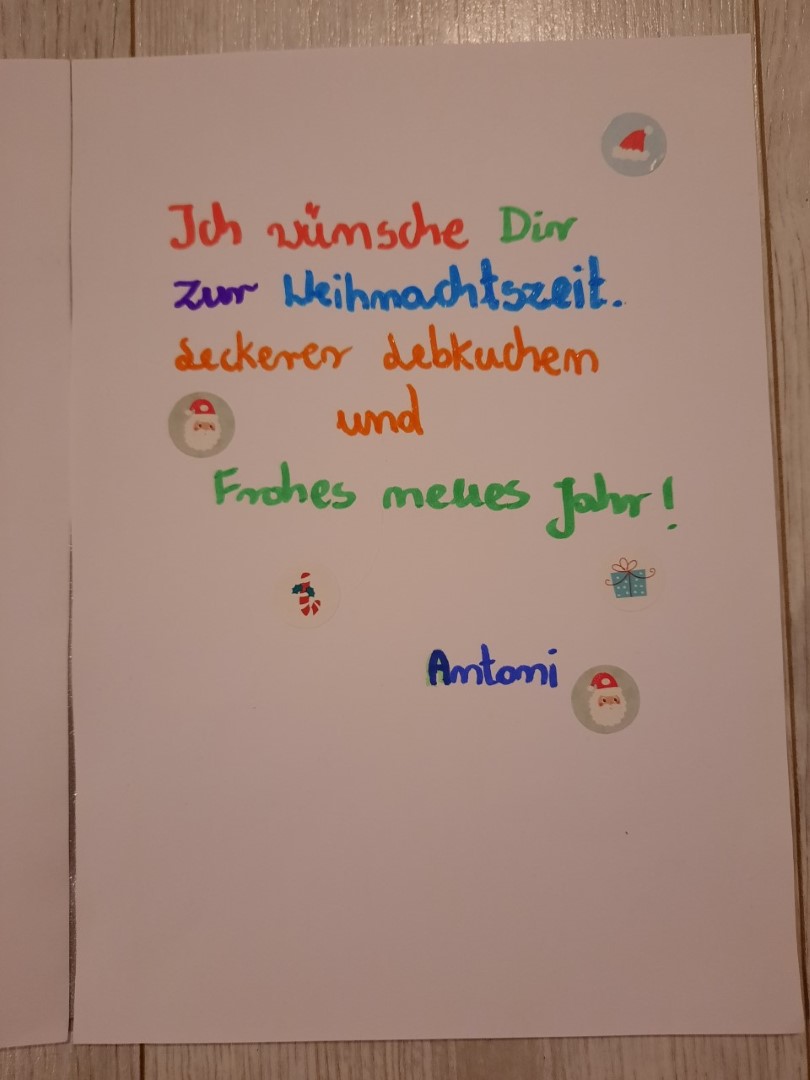 Ich wünsche Dir
zur Weihnachtszeit.
Leckerer Lebkuchen
und
Frohes neues Jahr!
Antoni